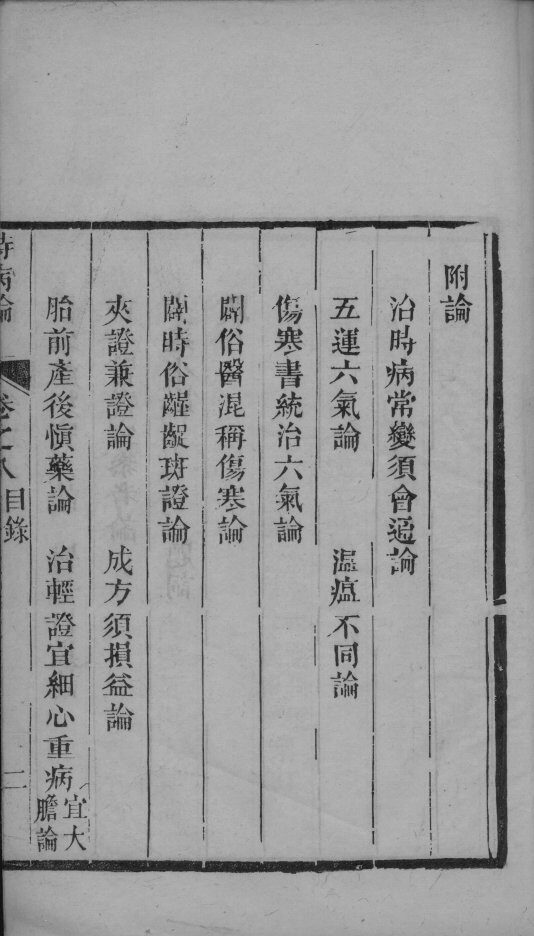 附論
治時病常變須會通論
五運六氣論　溫瘟不同論
傷寒書統治六氣論
闢俗醫混稱傷寒論
闢時俗齷齪斑證論
夾證兼證論　成方須損益論
胎前產後慎藥論　治輕證宜細心重病宜大膽論
時病論　卷之八目錄　二